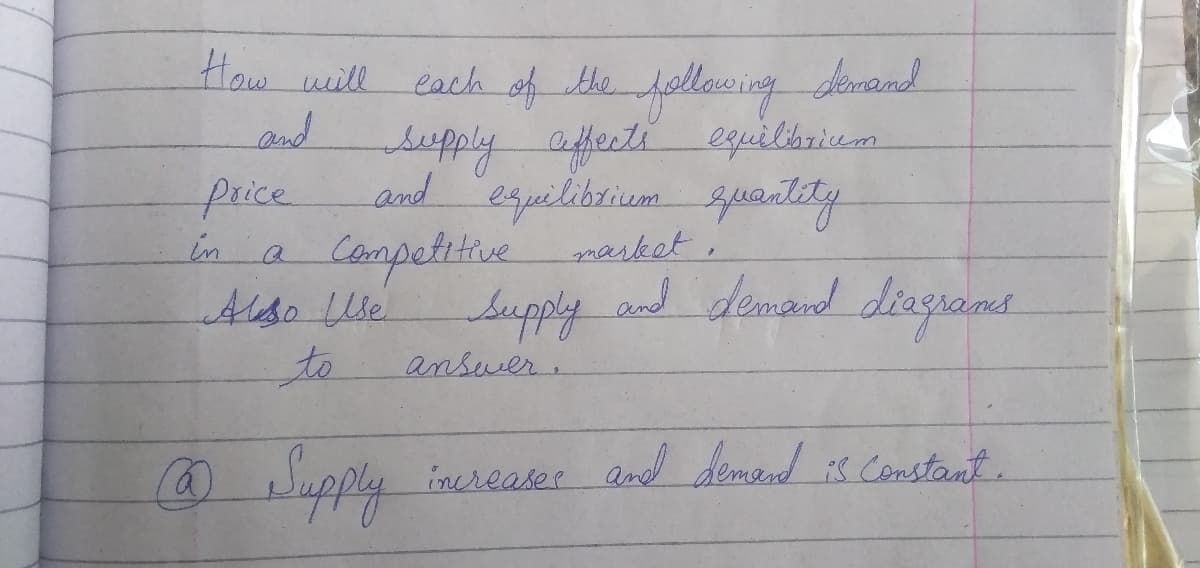 How will each of the following demand
and supply affects equilibrium
price and equilibrium quantity
in a Competitive market.
Also Use supply and demand diagrams
to answer.
(a) Supply increases and demand is Constant.